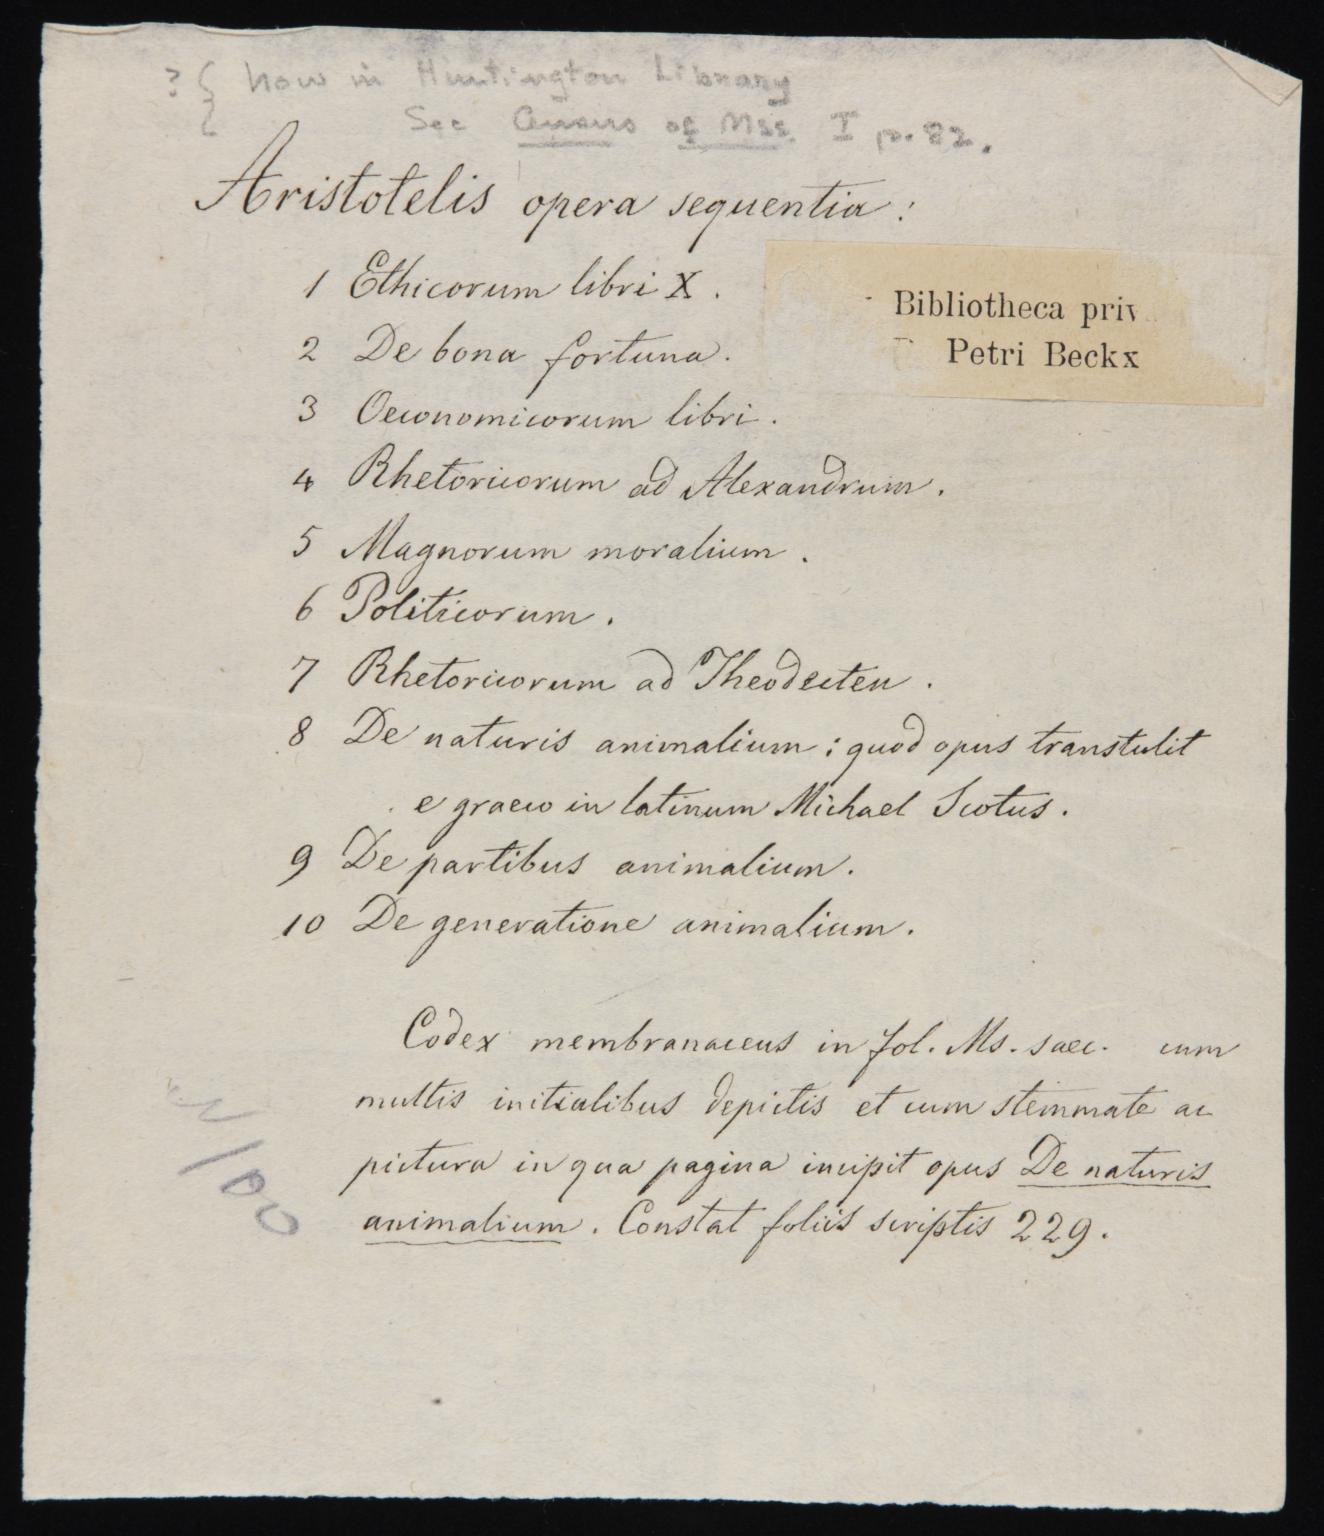 ? { Now in Huntington Library
See Census of Mss. I p. 82.
Aristotelis opera sequentia :
1 Ethicorum libri X .
Bibliotheca priv
Petri Beckx
2 De bona fortuna .
3 Oeconomicorum libri .
4 Rhetoricorum ad Alexandrum .
5 Magnorum moralium .
6 Politicorum .
7 Rhetoricorum ad Theodecten .
8 De naturis animalium ; quod opus transtulit
e graeco in latinum Michael Scotus .
9 De partibus animalium .
10 De generatione animalium .
Codex membranaceus in fol. Ms. saec. cum
multis initialibus depictis et cum stemmate ac
pictura in qua pagina incipit opus De naturis
animalium . Constat foliis scriptis 229 .